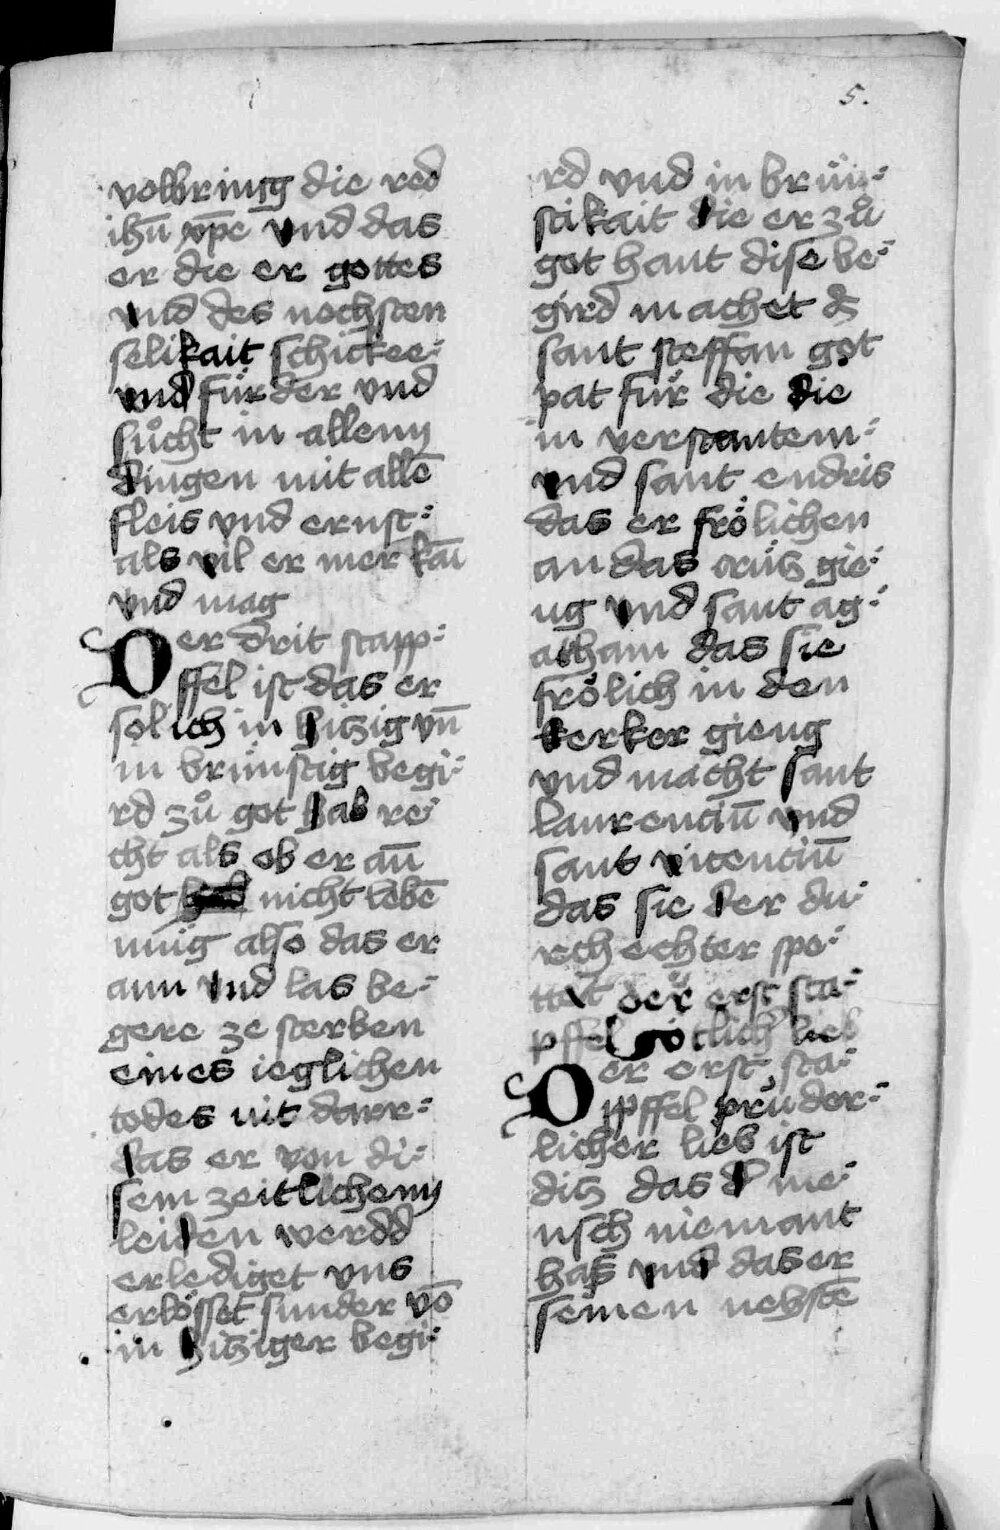 5.
volbringg die red
ihū xp̄e vnd das
er die er gottes
vnd des nochsten
selikait schickee:
vnd fürder vnd
sůcht in allem
dingen mit allē
fleis vnd ernst:
als vil er mer kā
vnd mag
Der drit stapp:
ffel ist das er
solich in hitzig vn̄
in brünstig begi:
rd zů got hab re:
cht als ob er an̄
got nicht lebē
müg also das er
ann vnd las be:
gere ze sterben
eines ieglichen
todes nit darr:
das er von di:
sem zeitlichem
leiden werdd
erlediget vns
erlösset sunder vō
in hitziger begi:
rd vnd in brün:
stikait die er zů
got hant dise be:
gird machet dz
sant steffan got
pat für die die
in verstantem:
vnd sant endris
das er frölichen
an das crütz gie:
ng vnd sant ag:
atham das sie
frölich in den
kerker gieng
vnd macht sant
laurenciū vnd
sant vicenciū
das sie der du:
rchechter spo:
ttet der erst sta:
pffel götlich lieb
Der erst sta:
pffel prüder:
licher lieb ist
ditz das d' me:
nsch niemant
haß vnd das er
seinen nehstē